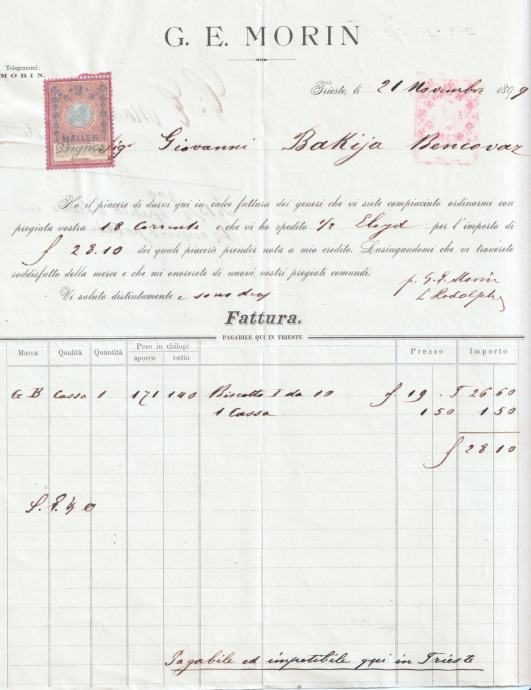 G. E. MORIN
Telegrammi:
MORIN.
Trieste, li 21 Novembre 1899
2
HELLER
Signor Sigr Giovanni Bakija Bencovaz
Ho il piacere di darvi qui in calce fattura dei generi che vi siete compiaciuto ordinarmi con
pregiata vostra 18 Corrente e che vi ho spedito 1/2 Lloyd per l'importo di
f 28.10 dei quali piacerà prender nota a mio credito. Lusingandomi che vi troverete
soddisfatto della merce e che mi onorerete di nuovi vostri pregiati comandi.
Vi saluto distintamente e sono
p. G. E. Morin
L Rodolph
Fattura.
PAGABILE QUI IN TRIESTE
Marca Qualità Quantità Peso in chilogr. sporco netto Prezzo Importo
G B Cassa 1 171 140 Biscotto I da 10 f 19. f 26 60
1 Cassa 1 50 1 50
f 28 10
Pagabile ed impetibile qui in Trieste